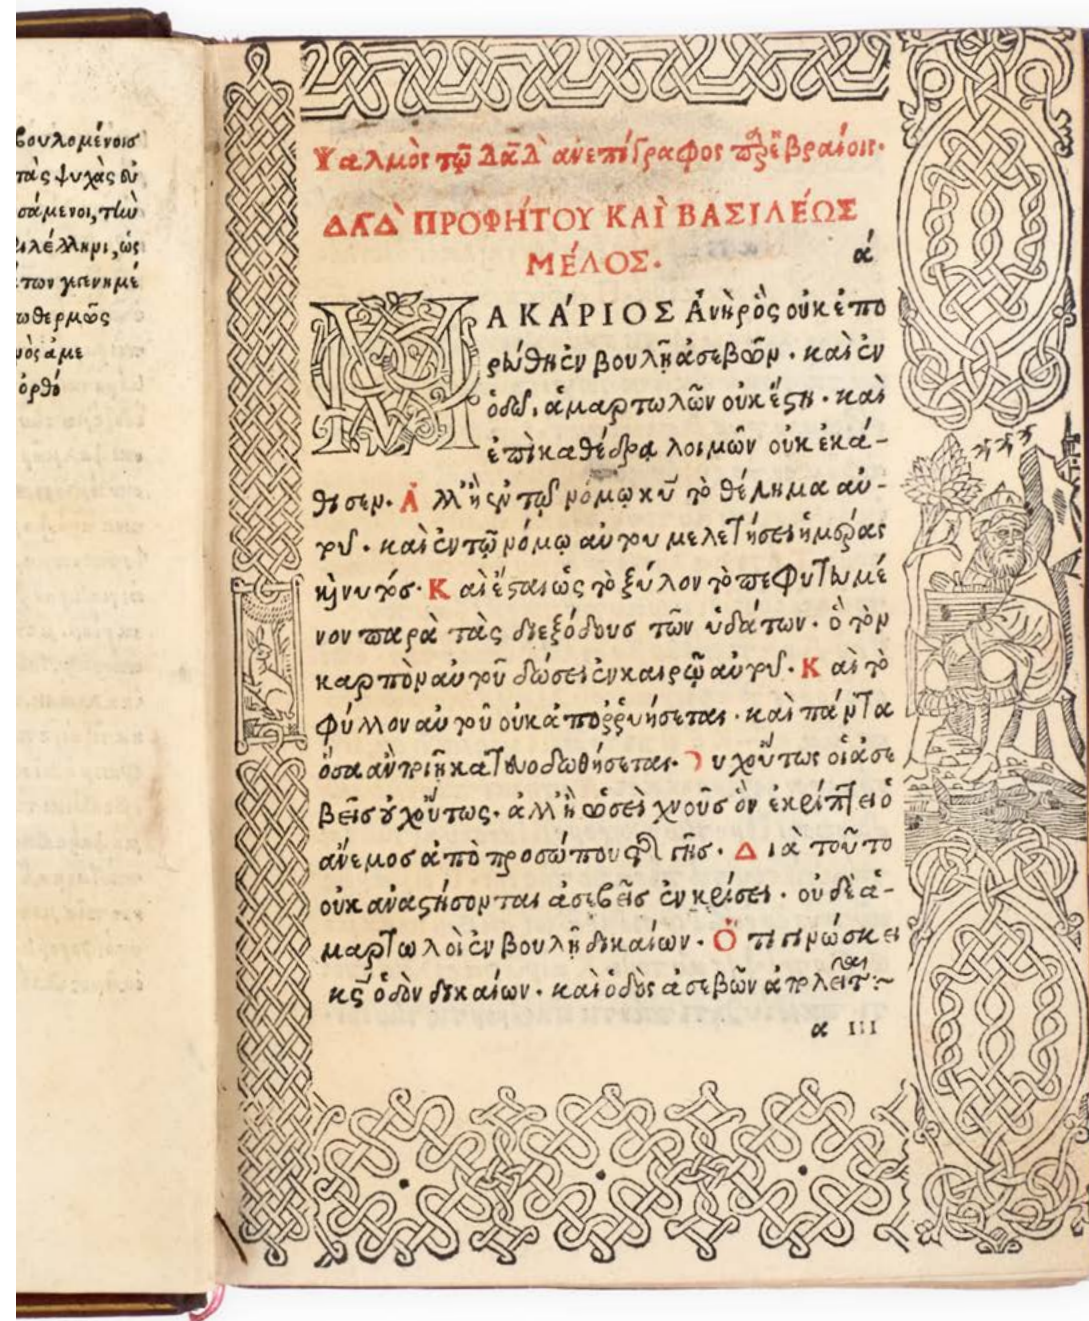 βουλομένοισ
τὰς ψυχὰς
σάμενοι, τὴν
ὡς
των
θερμῶς
ὀρθό
Ψαλμὸς τῷ Δᾱδ̀ ἀνεπίγραφος παρ' ἑβραίοις.
ΔΑΔ̀ ΠΡΟΦΉΤΟΥ ΚΑῚ ΒΑΣΙΛΈΩΣ
ΜΈΛΟΣ.
ά
ΜΑΚΆΡΙΟΣ Ἀνὴρ ὃς οὐκ ἐπο
ρεύθη ἐν βουλῇ ἀσεβῶν. καὶ ἐν
ὁδῷ ἁμαρτωλῶν οὐκ ἔστη. καὶ
ἐπὶ καθέδρᾳ λοιμῶν οὐκ ἐκά-
θισεν. Ἀλλ' ἢ ἐν τῷ νόμῳ κῡ τὸ θέλημα αὐ-
τοῦ. καὶ ἐν τῷ νόμῳ αὐτου μελετήσει ἡμέρας
καὶ νυκτός. Καὶ ἔσται ὡς τὸ ξύλον τὸ πεφυτευμέ
νον παρὰ τὰς διεξόδουσ τῶν ὑδάτων. ὃ τὸν
καρπὸν αὐτοῦ δώσει ἐν καιρῷ αὐτοῦ. Καὶ τὸ
φύλλον αὐτοῦ οὐκ ἀποῤῥυήσεται. καὶ πάντα
ὅσα ἂν ποιῇ κατευοδωθήσεται. Ουχ οὕτως οἱ ἀσε
βεῖσ οὐχ οὕτως. ἀλλ' ἢ ὡσεὶ χνοῦσ ὃν ἐκρίπτει ὁ
ἄνεμοσ ἀπὸ προσώπου τῆς γῆσ. Διὰ τοῦτο
οὐκ ἀναστήσονται ἀσεβεῖσ ἐν κρίσει. οὐδὲ ἁ-
μαρτωλοὶ ἐν βουλῇ δικαίων. Ὅτι γινώσκει
κς̄ ὁδὸν δικαίων. καὶ ὁδὸς ἀσεβῶν ἀπολεῖται:~
α III